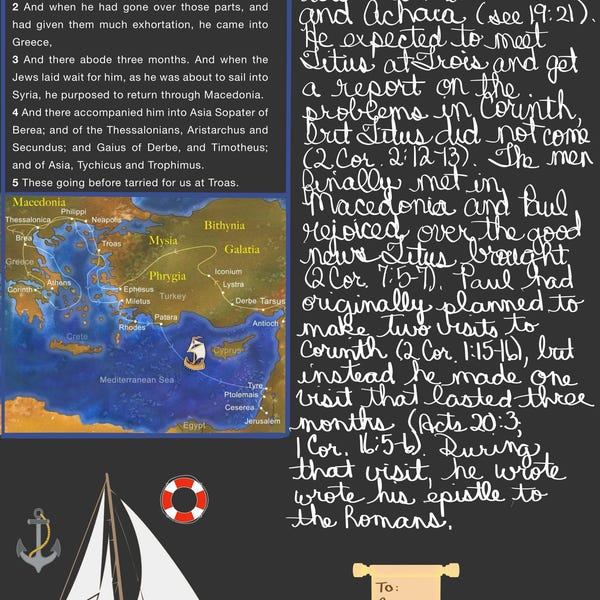 2 And when he had gone over those parts, and
had given them much exhortation, he came into
Greece,
3 And there abode three months. And when the
Jews laid wait for him, as he was about to sail into
Syria, he purposed to return through Macedonia.
4 And there accompanied him into Asia Sopater of
Berea; and of the Thessalonians, Aristarchus and
Secundus; and Gaius of Derbe, and Timotheus;
and of Asia, Tychicus and Trophimus.
5 These going before tarried for us at Troas.
Macedonia
Philippi
Thessalonica
Neapolis
Bithynia
Brea
Troas
Mysia
Galatia
Greece
Phrygia
Iconium
Athens
Ephesus
Lystra
Corinth
Turkey
Miletus
Derbe
Tarsus
Patara
Rhodes
Antioch
Crete
Cyprus
Mediterranean Sea
Tyre
Ptolemais
Ceserea
Jerusalem
Egypt
and Achaia (see 19:21).
He expected to meet
Titus at Trois and get
a report on the
problems in Corinth,
but Titus did not come
(2 Cor. 2:12-13). The men
finally met in
Macedonia and Paul
rejoiced over the good
news Titus brought
(2 Cor. 7:5-7). Paul had
originally planned to
make two visits to
Corinth (2 Cor. 1:15-16), but
instead he made one
visit that lasted three
months (Acts 20:3;
1 Cor. 16:5-6). During
that visit, he wrote
wrote his epistle to
the Romans.
To: